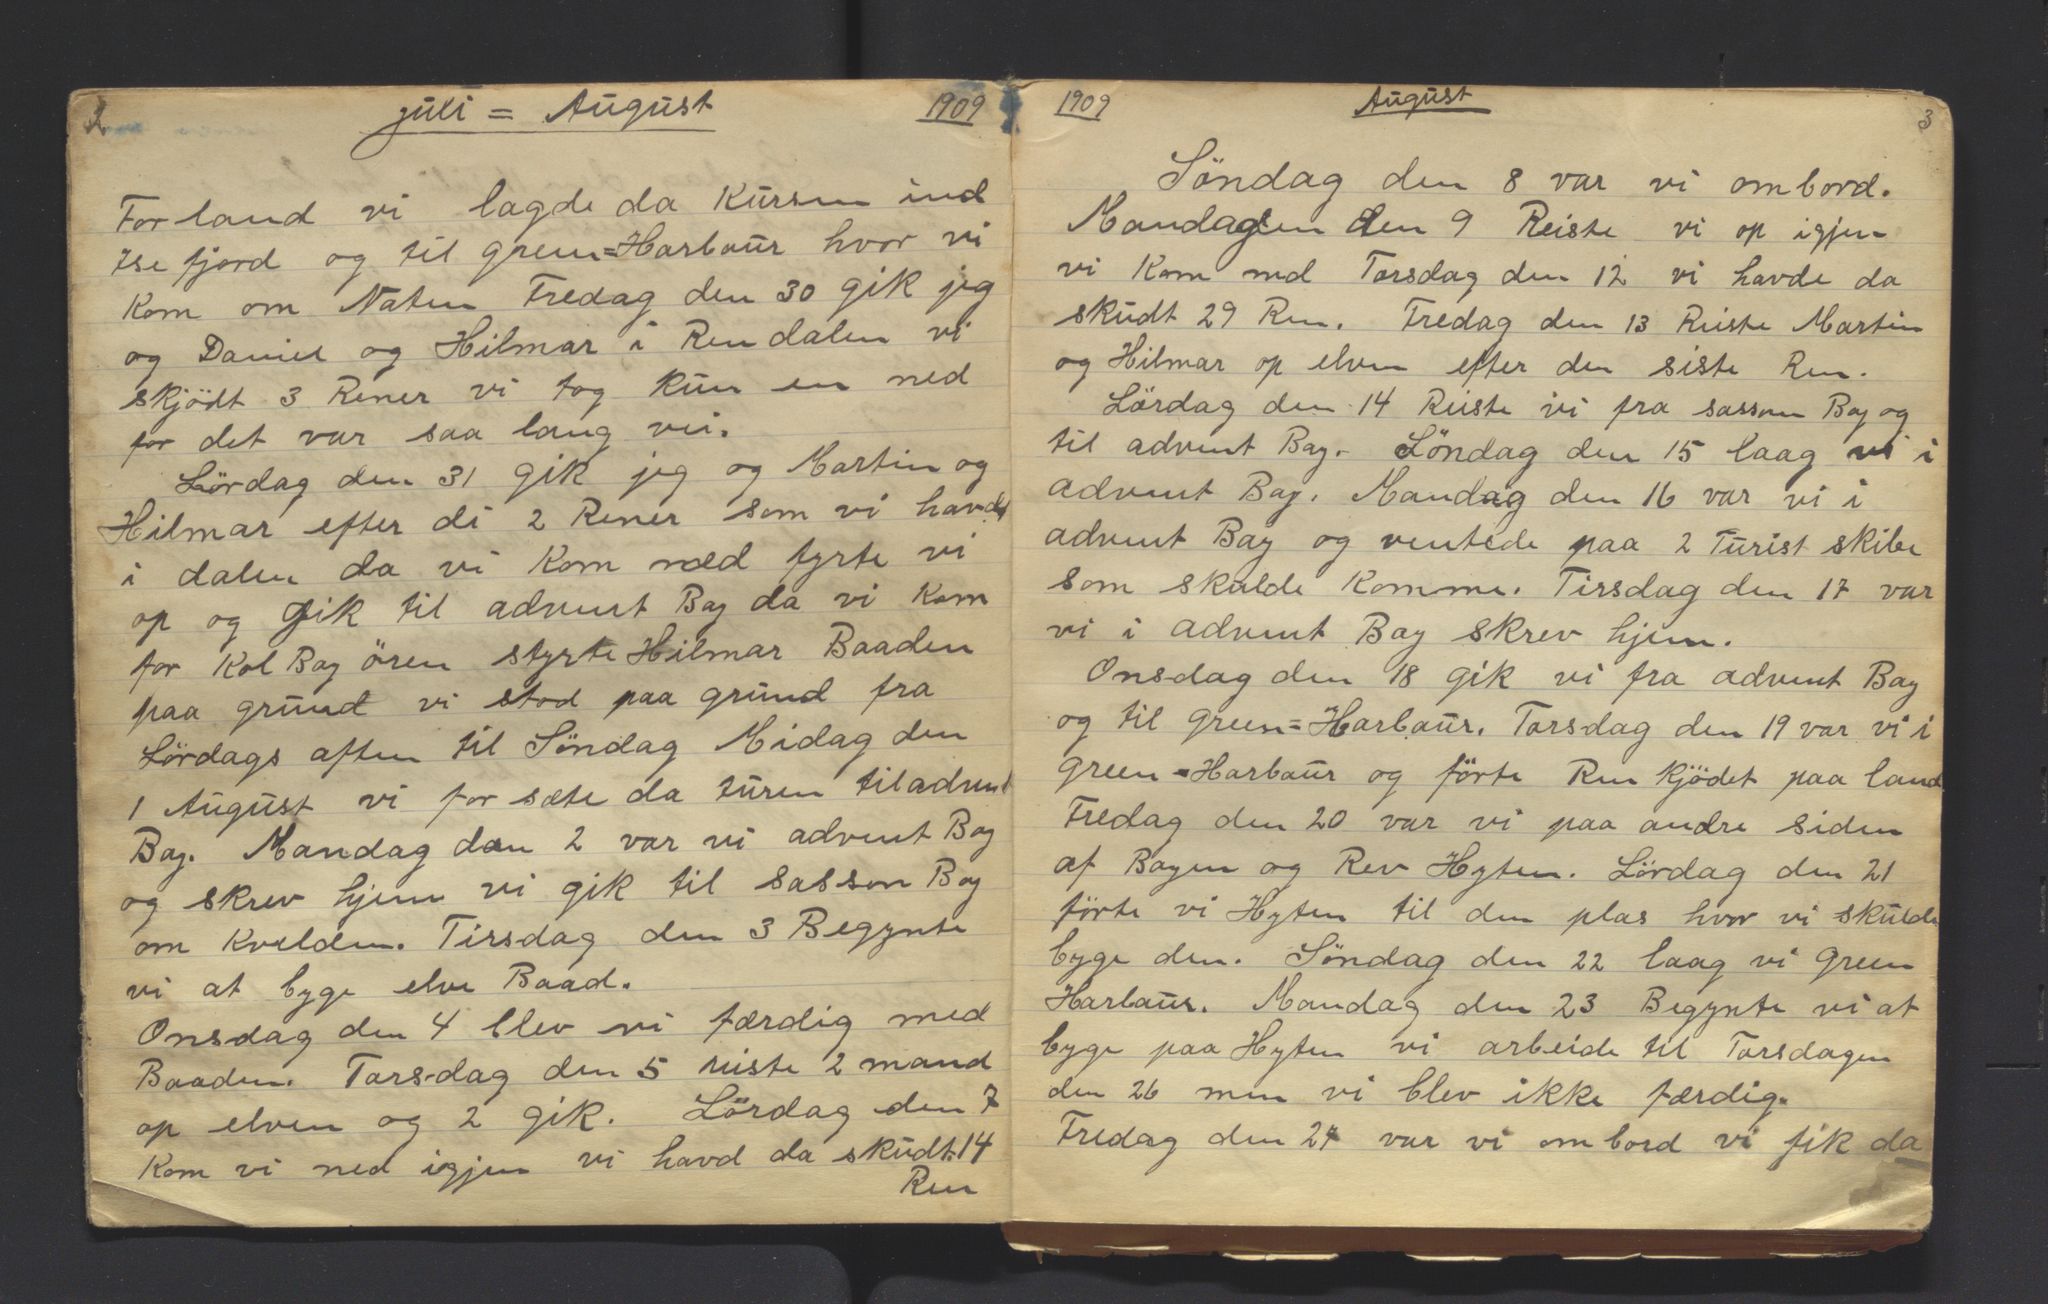 2 juli = August 1909
For land vi lagde da Kursen ind
Ise fjord og til green=Harbaur hvor vi
Kom om Naten Fredag den 30 gik jeg
og Daniel og Hilmar i Ren dalen vi
skjödt 3 Rener vi tog kun en ned
for det var saa lang vei.
Lördag den 31 gik jeg og Martin og
Hilmar efter di 2 Rener som vi havde
i dalen da vi Kom ned fyrte vi
op og gik til advent Bay da vi Kom
for Kol Bay ören styrte Hilmar Baaden
paa grund vi stod paa grund fra
Lördags aften til Söndag Midag den
1 August vi for sæte da turen til advent
Bay. Mandag den 2 var vi advent Bay
og skrev hjem vi gik til sassen Bay
om Kvelden. Tirsdag den 3 Begynte
vi at byge elve Baad.
Onsdag den 4 blev vi færdig med
Baaden. Torsdag den 5 reiste 2 mand
op elven og 2 gik. Lördag den 7
Kom vi ned igjen vi havd da skudt 14
Ren
1909 August 3
Söndag den 8 var vi ombord.
Mandagen den 9 Reiste vi op igjen
vi Kom ned Torsdag den 12 vi havde da
skudt 29 Ren. Fredag den 13 Reiste Martin
og Hilmar op elven efter den siste Ren.
Lördag den 14 Reiste vi fra sassen Bay og
til advent Bay. Söndag den 15 laag vi i
advent Bay. Mandag den 16 var vi i
advent Bay og ventede paa 2 Turist skibe
som skulde Komme. Tirsdag den 17 var
vi i advent Bay skrev hjem.
Onsdag den 18 gik vi fra advent Bay
og til green=Harbaur. Torsdag den 19 var vi i
green=Harbaur og förte Ren kjödet paa land
Fredag den 20 var vi paa andre siden
af Bayen og Rev Hyten. Lördag den 21
förte vi Hyten til den plas hvor vi skulde
byge den. Söndag den 22 laag vi Green
Harbaur. Mandag den 23 Begynte vi at
byge paa Hyten vi arbeide til Torsdagen
den 26 men vi blev ikke færdig.
Fredag den 27 var vi om bord vi fik da